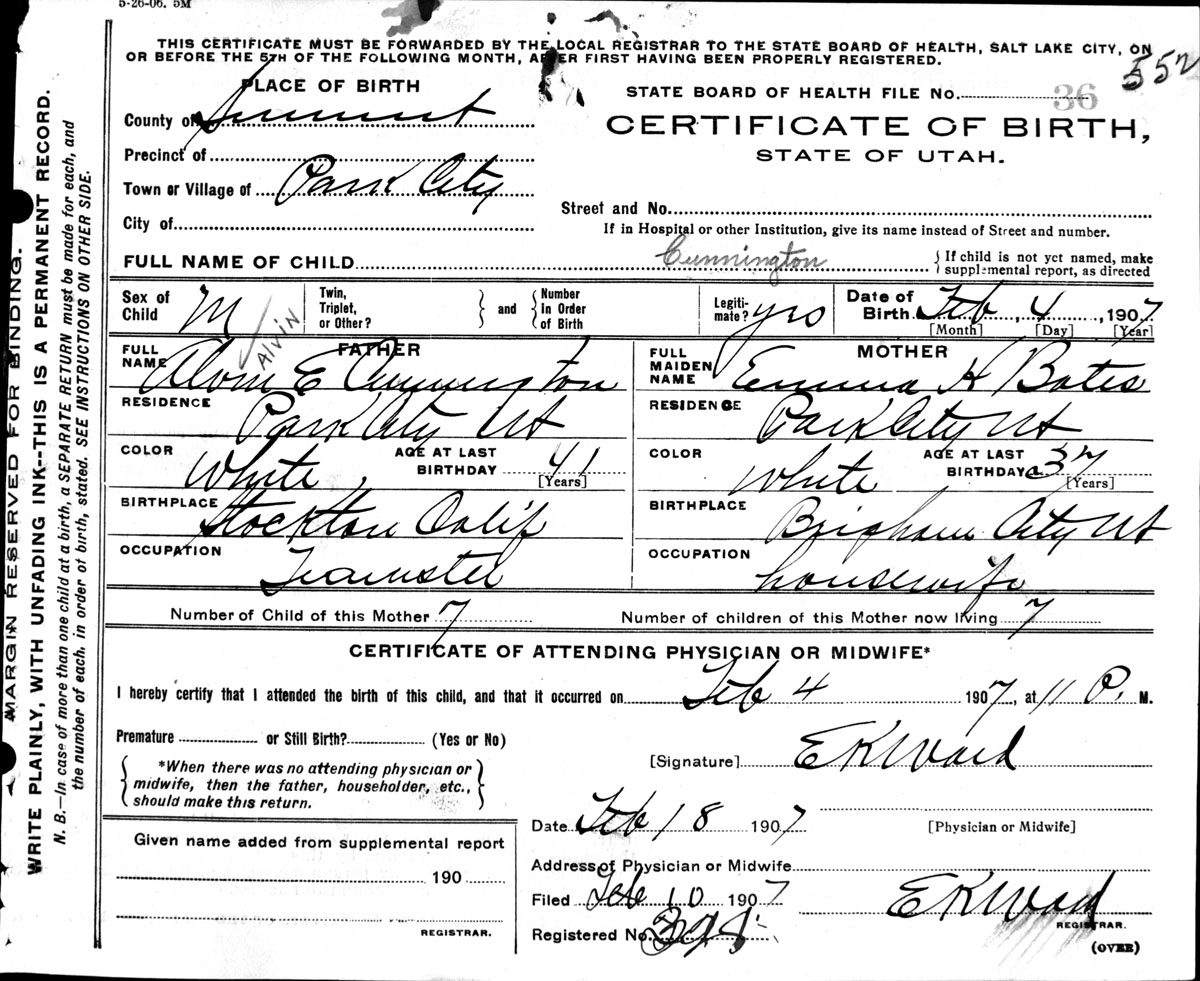 5-26-06. 5M
THIS CERTIFICATE MUST BE FORWARDED BY THE LOCAL REGISTRAR TO THE STATE BOARD OF HEALTH, SALT LAKE CITY, ON
OR BEFORE THE 5TH OF THE FOLLOWING MONTH, AFTER FIRST HAVING BEEN PROPERLY REGISTERED.
552
PLACE OF BIRTH
County of Summit
Precinct of
Town or Village of Park City
City of
STATE BOARD OF HEALTH FILE No. 36
CERTIFICATE OF BIRTH,
STATE OF UTAH.
Street and No.
If in Hospital or other Institution, give its name instead of Street and number.
FULL NAME OF CHILD Cunnington { If child is not yet named, make
supplemental report, as directed
Sex of Child M
Twin, Triplet, or Other? } and { Number In Order of Birth
Legiti-mate? yes
Date of Birth Feb 4, 1907
[Month] [Day] [Year]
ALVIN
FATHER
FULL NAME Alvin E Cunnington
RESIDENCE Park City Ut
COLOR White AGE AT LAST BIRTHDAY 41
[Years]
BIRTHPLACE Stockton Calif
OCCUPATION Teamster
MOTHER
FULL MAIDEN NAME Emma K Bates
RESIDENCE Park City Ut
COLOR White AGE AT LAST BIRTHDAY 37
[Years]
BIRTHPLACE Brigham City Ut
OCCUPATION housewife
Number of Child of this Mother 7 Number of children of this Mother now living 7
CERTIFICATE OF ATTENDING PHYSICIAN OR MIDWIFE*
I hereby certify that I attended the birth of this child, and that it occurred on Feb 4 1907, at 11 P. M.
Premature or Still Birth? (Yes or No)
{ *When there was no attending physician or
midwife, then the father, householder, etc.,
should make this return. }
[Signature] E K Ward
Date Feb 18 1907
[Physician or Midwife]
Given name added from supplemental report
190
REGISTRAR.
Address of Physician or Midwife
Filed Feb 10 1907 E K Ward
REGISTRAR.
Registered No.
(OVER)
MARGIN RESERVED FOR BINDING.
WRITE PLAINLY, WITH UNFADING INK--THIS IS A PERMANENT RECORD.
N. B.—In case of more than one child at a birth, a SEPARATE RETURN must be made for each, and
the number of each, in order of birth, stated. SEE INSTRUCTIONS ON OTHER SIDE.